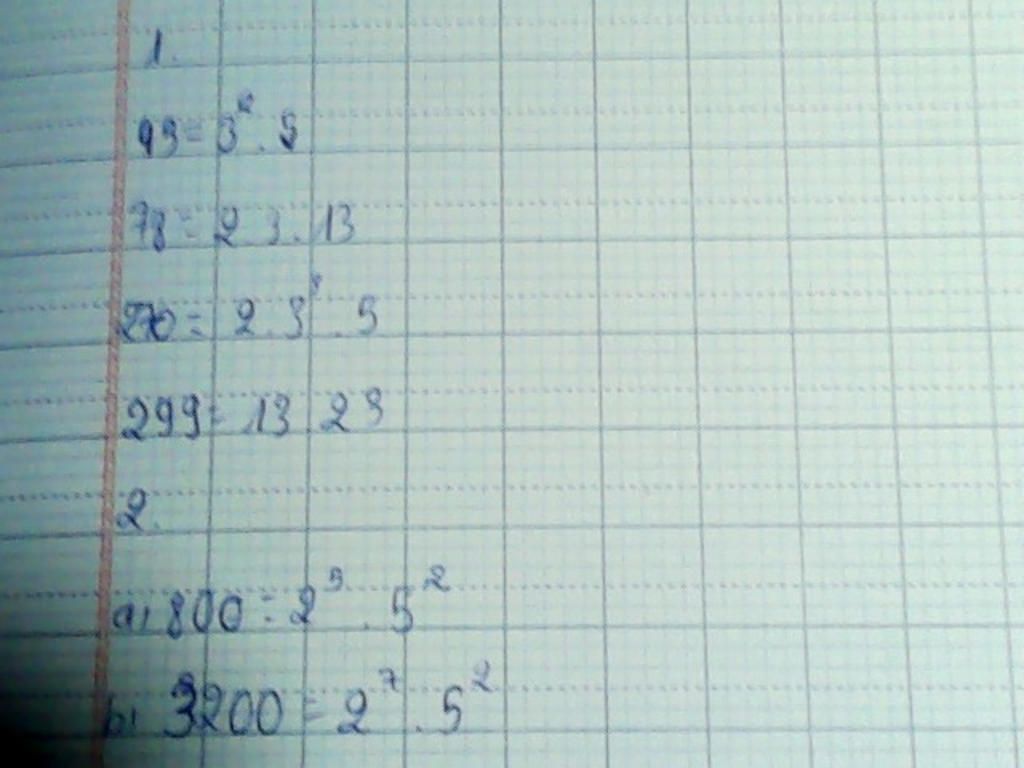 1.
93 = 3² . 5
78 = 2 3 . 13
270 = 2 . 3³ . 5
299 = 13 23
2.
a) 800 = 2⁵ . 5²
b) 3200 = 2⁷ . 5²